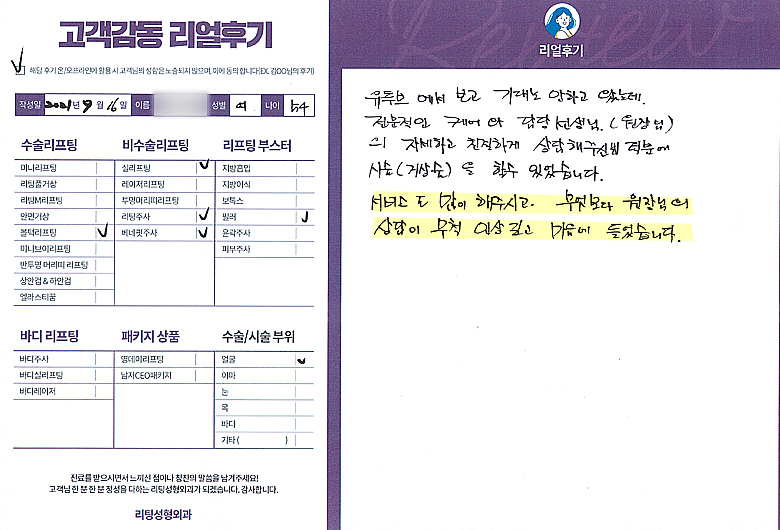 고객감동 리얼후기
해당 후기 온/오프라인에 활용 시 고객님의 성함은 노출되지 않으며, 이에 동의 합니다(EX. 김OO님의 후기)
작성일 2021년 9월 16일 이름 성별 여 나이 54
수술리프팅
미니리프팅
리팅풀거상
리팅M리프팅
안면거상
볼턱리프팅
미니브이리프팅
반투명 머리띠 리프팅
상안검 & 하안검
엘라스티꿈
비수술리프팅
실리프팅
레이저리프팅
투명머리띠리프팅
리팅주사
베네핏주사
리프팅 부스터
지방흡입
지방이식
보톡스
필러
윤곽주사
피부주사
바디 리프팅
바디주사
바디실리프팅
바디레이저
패키지 상품
영데이리프팅
남자CEO패키지
수술/시술 부위
얼굴
이마
눈
목
바디
기타 ( )
진료를 받으시면서 느끼신 점이나 칭찬의 말씀을 남겨주세요!
고객님 한 분 한 분 정성을 다하는 리팅성형외과가 되겠습니다. 감사합니다.
리팅성형외과
Review
리얼후기
유튜브 에서 보고 기대도 안하고 왔는데.
전문적인 케어 와 담당 선생님. (원장님)
의 자세하고 친절하게 상담해주신 덕분에
시술(거상술) 을 할수 있었습니다.
서비스 도 많이 해주시고. 무엇보다 원장님 의
상담이 무척 인상 깊고 마음에 들었습니다.